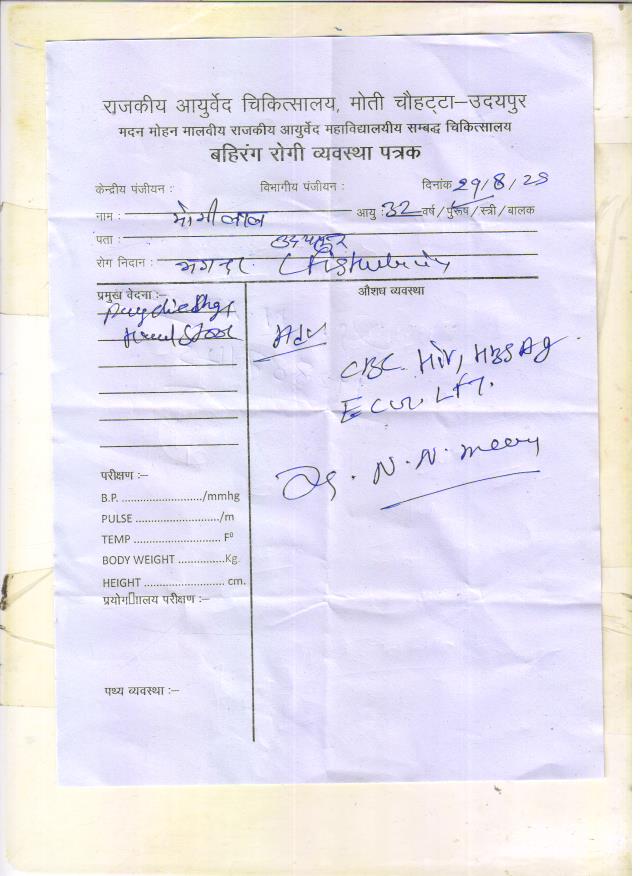 राजकीय आयुर्वेद चिकित्सालय, मोती चौहट्टा–उदयपुर
मदन मोहन मालवीय राजकीय आयुर्वेद महाविद्यालयीय सम्बद्ध चिकित्सालय
बहिरंग रोगी व्यवस्था पत्रक
केन्द्रीय पंजीयन : विभागीय पंजीयन : दिनांक 29/8/25
नाम : मांगीलाल आयु : 32 वर्ष/पुरूष/स्त्री/बालक
पता : उदयपुर
रोग निदान : भगन्दर
प्रमुख वेदना :– औशध व्यवस्था
Adv
CBC HIV, HBSAg
LFT.
Dr. N. N. 
परीक्षण :–
B.P. ........................../mmhg
PULSE ...................../m
TEMP ........................... Fº
BODY WEIGHT ..............Kg.
HEIGHT ......................... cm.
प्रयोग▯ाालय परीक्षण :–
पथ्य व्यवस्था :–